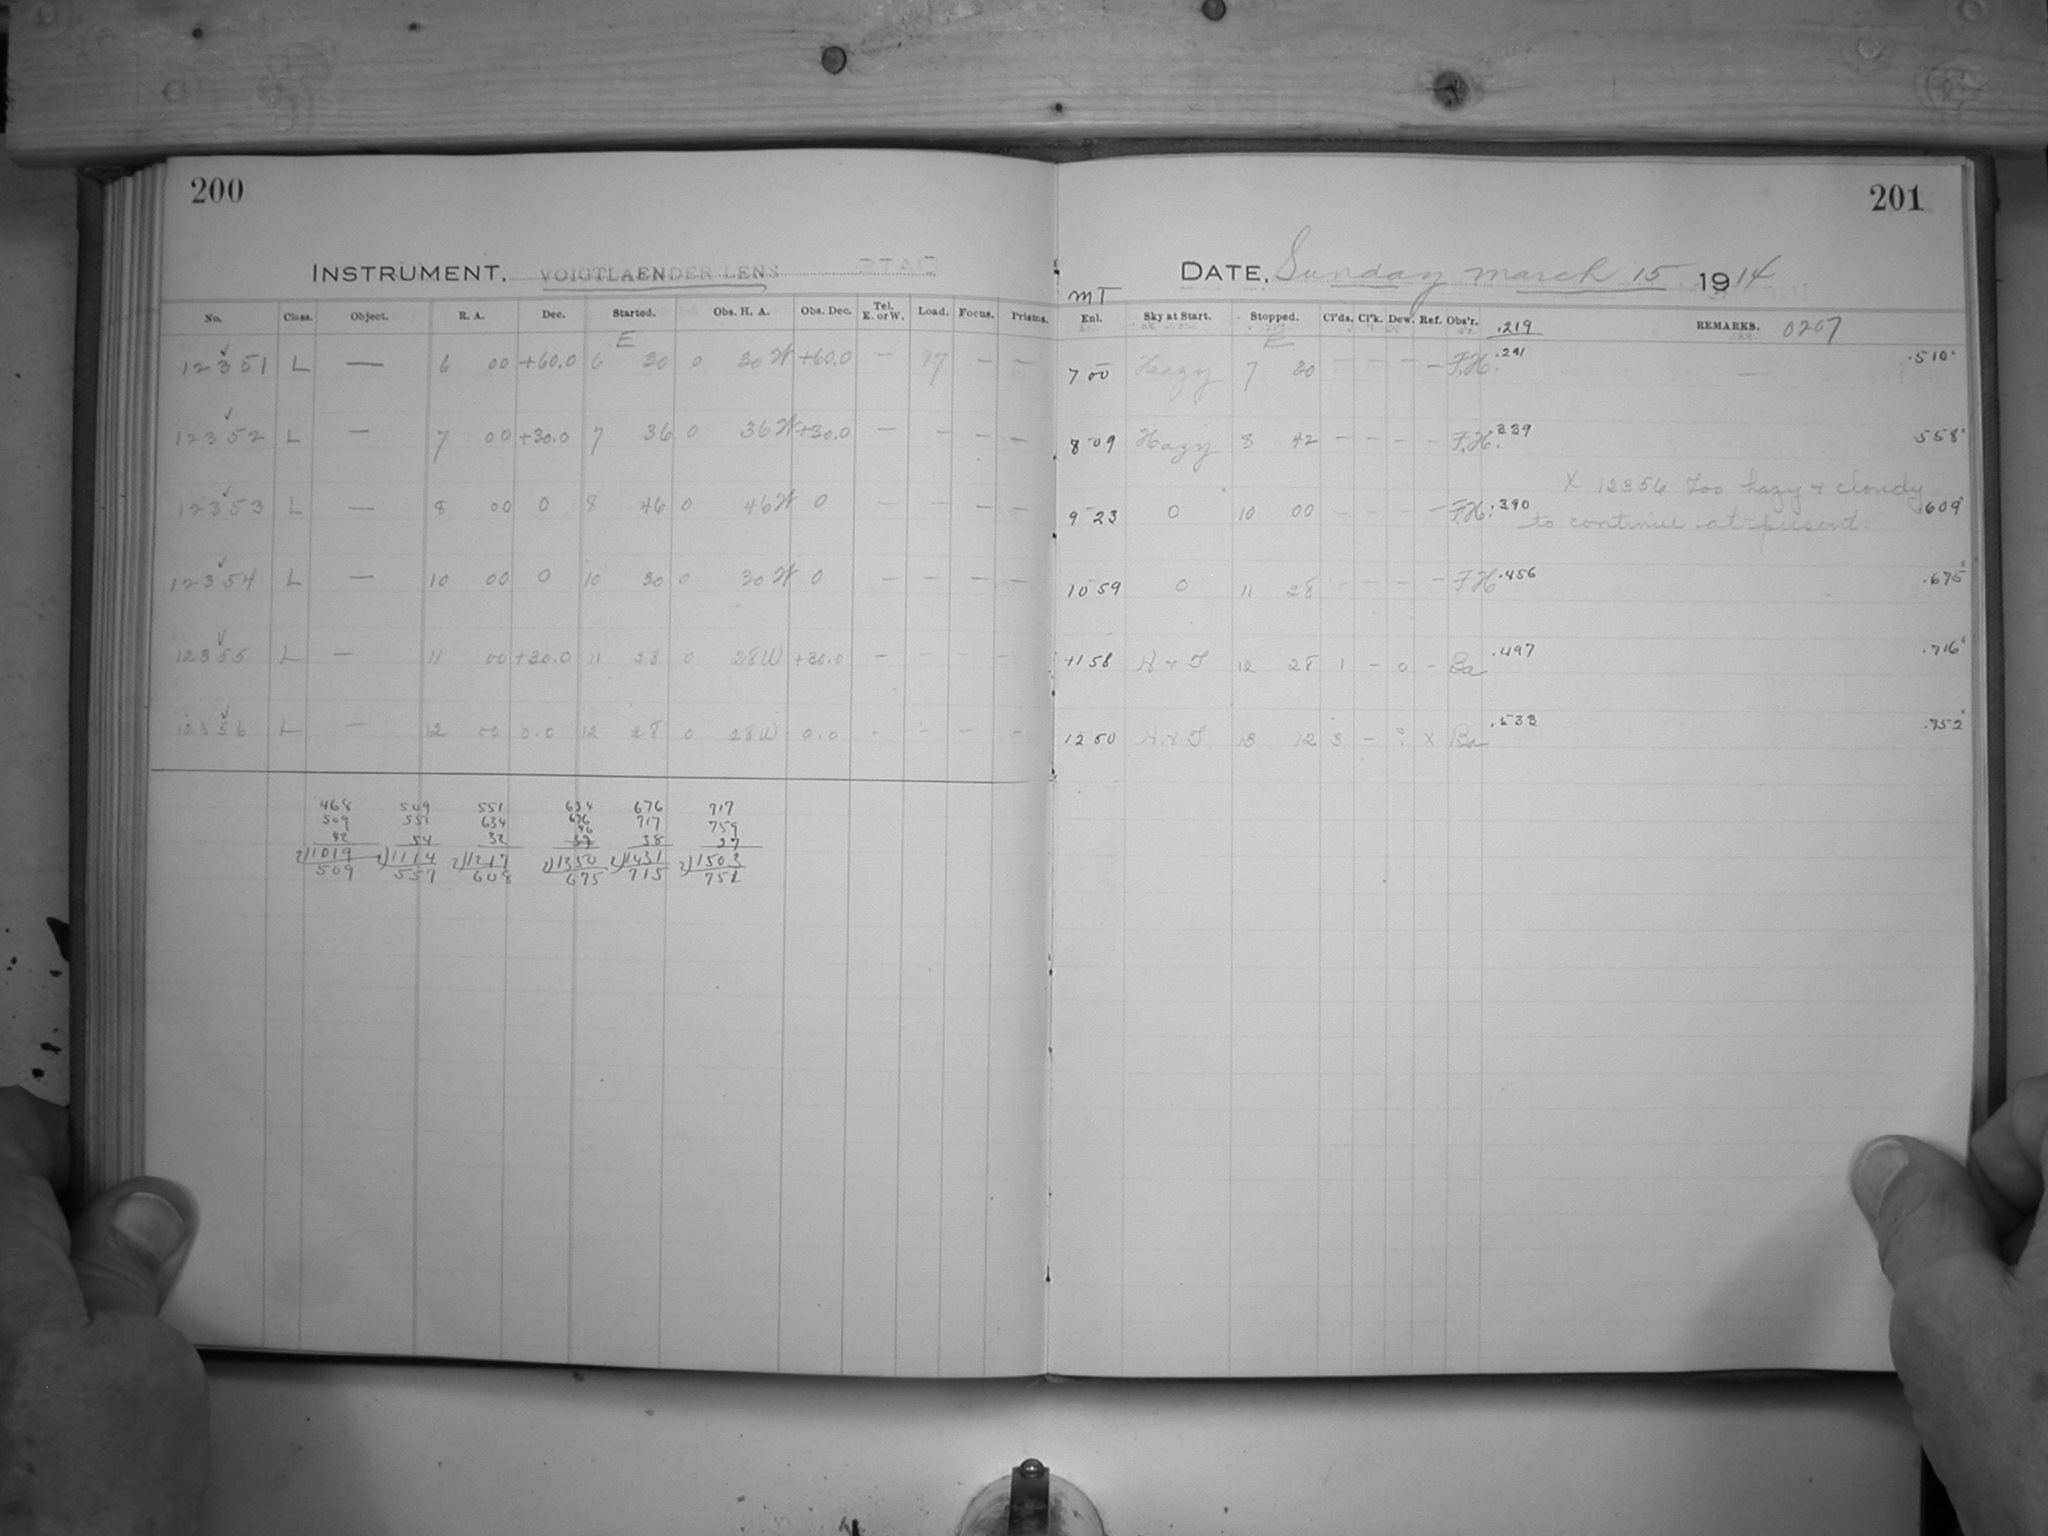 200
201
INSTRUMENT, VOIGTLAENDER LENS
DATE, Sunday March 15 1914
No. Class. Object. R. A. Dec. Started. Obs. H. A. Obs. Dec. Tel. E. or W. Load. Focus. Prisms.
MT
Enl. Sky at Start. Stopped. Cl'ds. Cl'k. Dew. Ref. Obs'r. .219 REMARKS. 0207
E
E
12351 L — 6 00 +60.0 6 30 0 30 W +60.0 — 97 — — 7 00 Hazy 7 30 — — — — F.H. .291 — .510
12352 L — 7 00 +30.0 7 36 0 36 W +30.0 — — — — 8 09 Hazy 8 42 — — — — F.H. .339 .558
X 12356 Too hazy & cloudy
12353 L — 8 00 0 8 46 0 46 W 0 — — — — 9 23 0 10 00 — — — — F.H. .390 .609
to continue at present.
12354 L — 10 00 0 10 30 0 30 W 0 — — — — 10 59 0 11 28 — — — — F.H. .456 .675
12355 L — 11 00 +30.0 11 28 0 28 W +30.0 — — — — 11 58 H & F 12 28 1 — 0 — Ba .497 .716
12356 L — 12 00 0.0 12 28 0 28 W 0.0 — — — — 12 50 H. & F 13 12 3 — ? X Ba .533 .752
468 509 551 634 676 717
509 551 634 676 717 759
42 54 32 40 38 27
2)1019 2)1114 2)1217 2)1350 2)1431 2)1503
509 557 608 675 715 751